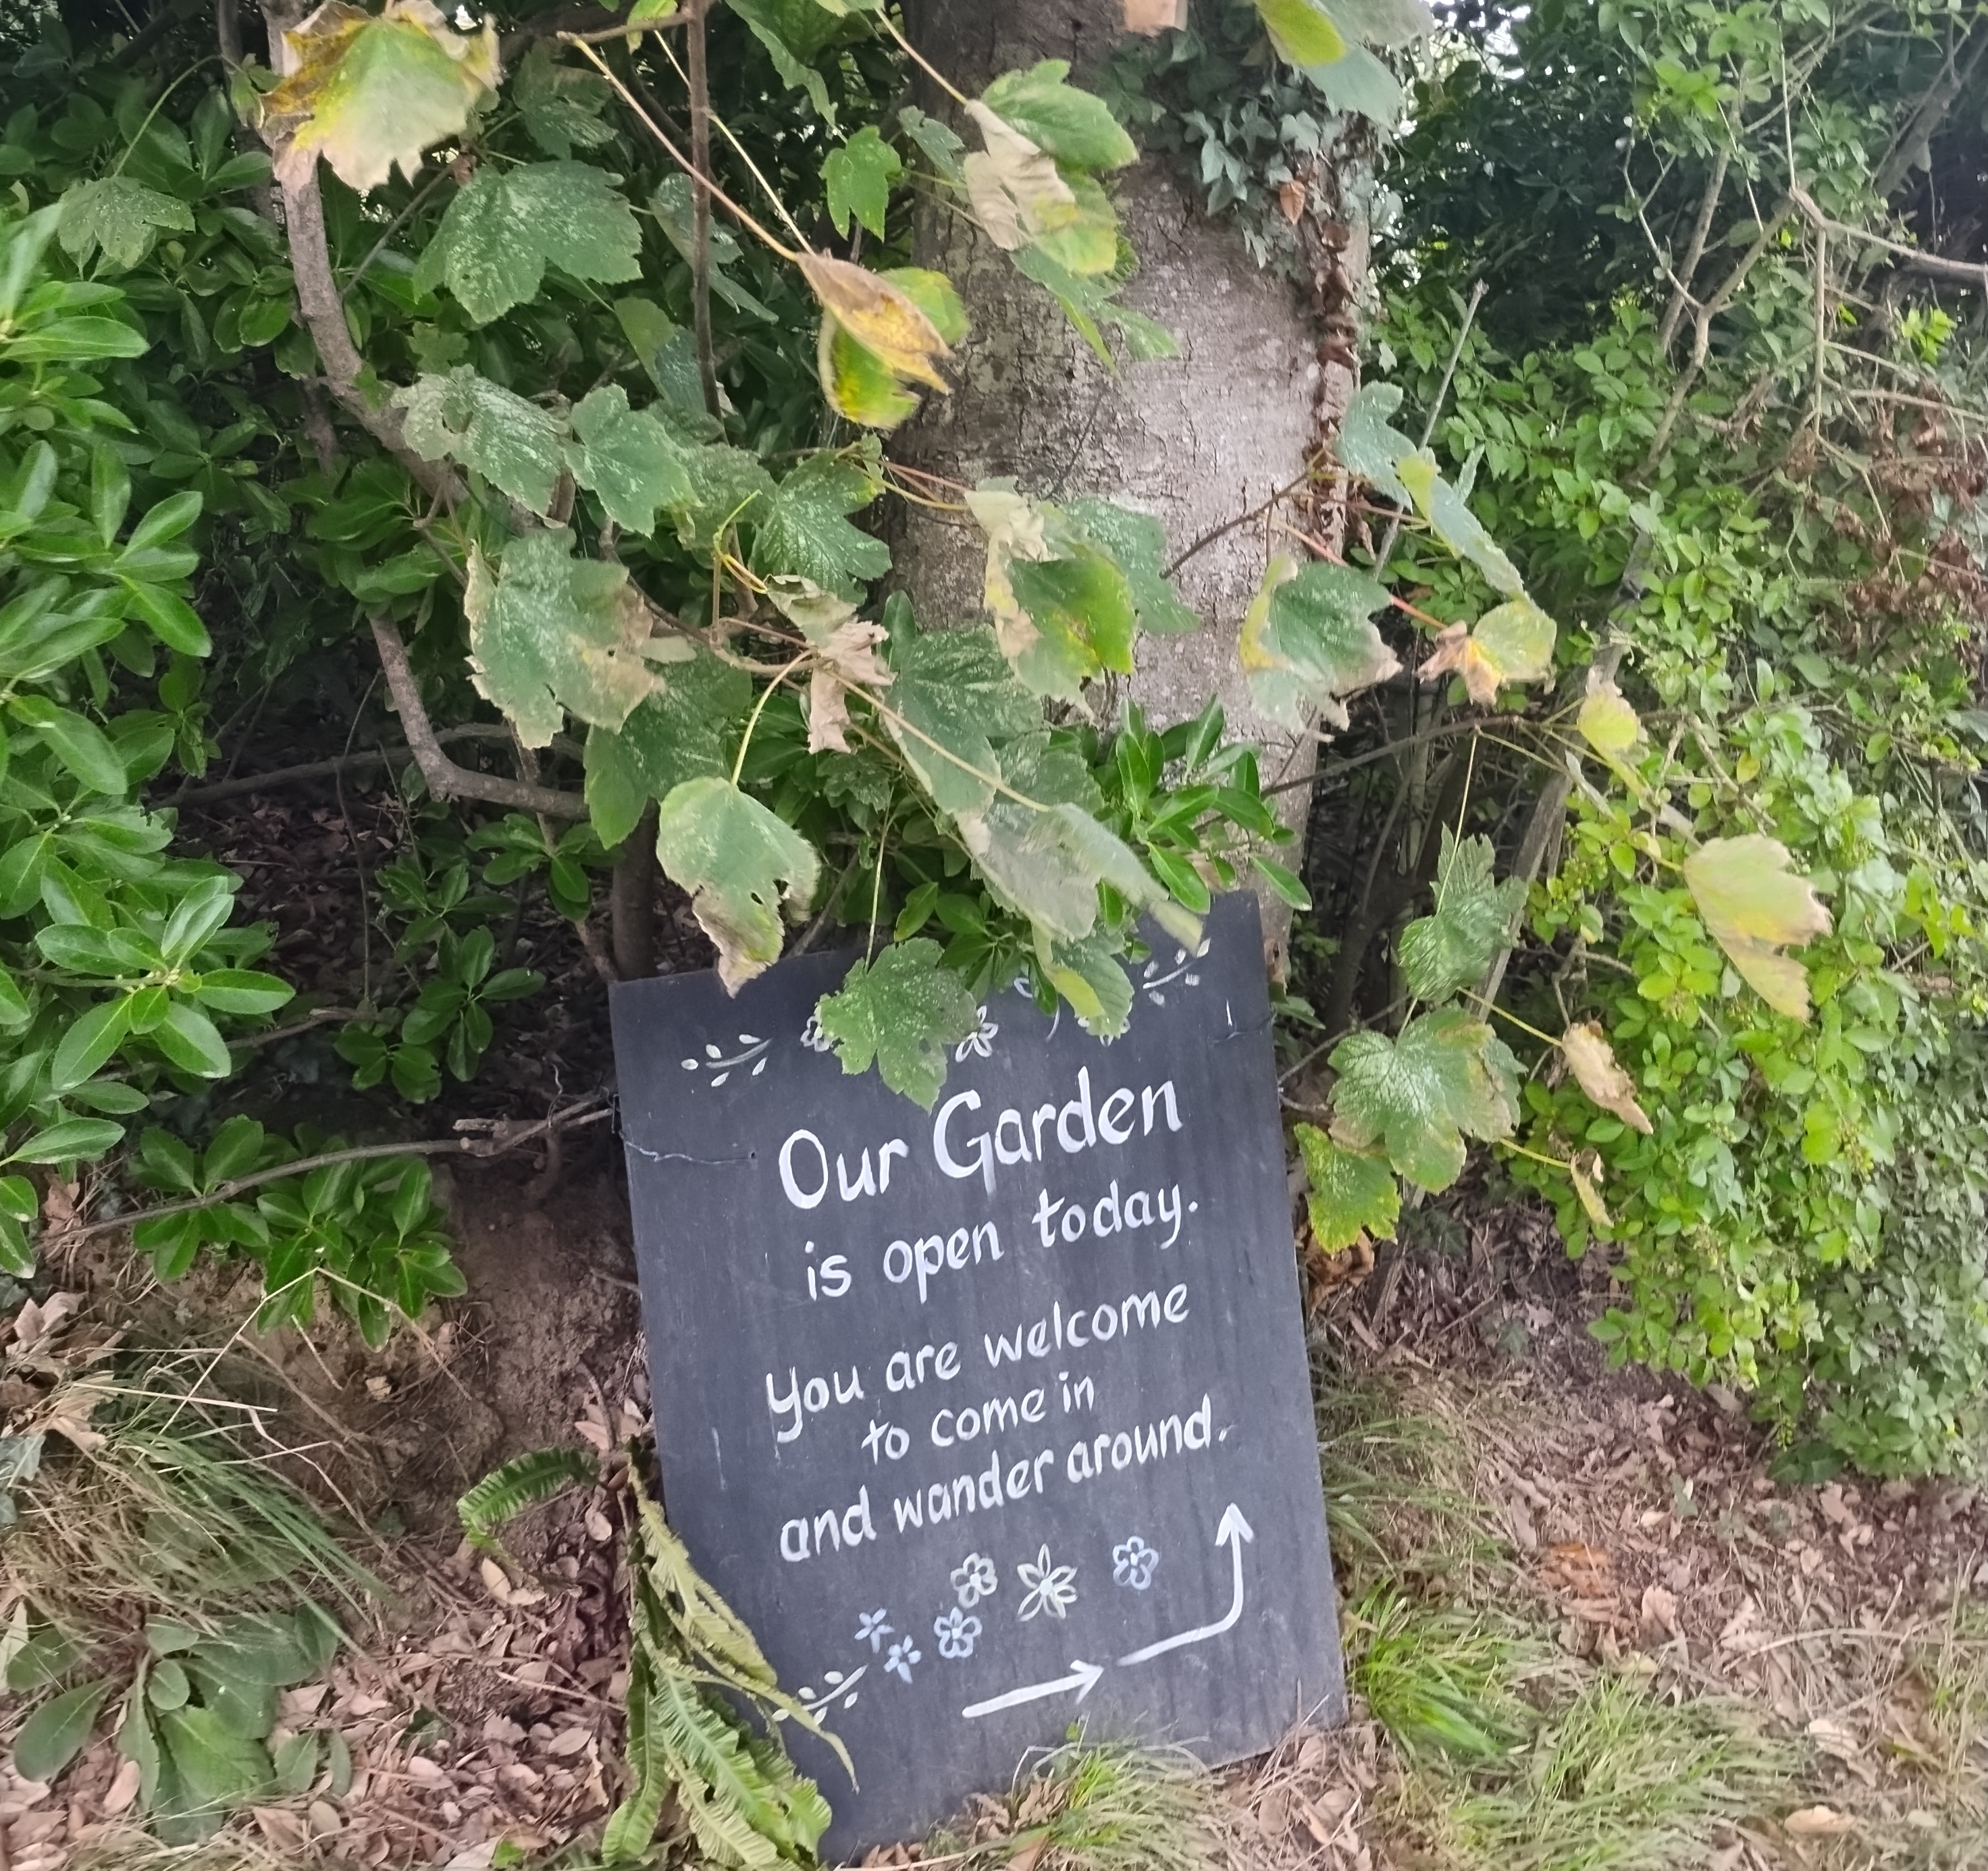 Our Garden
is open today.
You are welcome
to come in
and wander around.